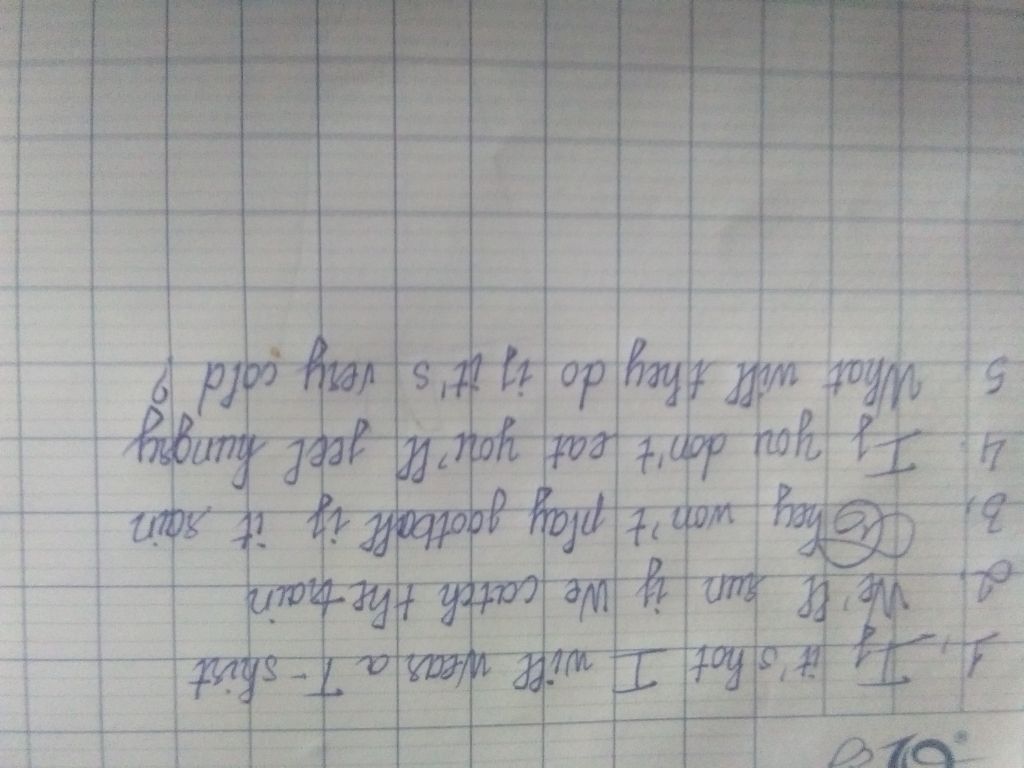 1. If it's hot I will wear a T-shirt
2. We'll run if we catch the train
3. They won't play football if it rain
4. If you don't eat you'll feel hungry
5 What will they do if it's very cold ?